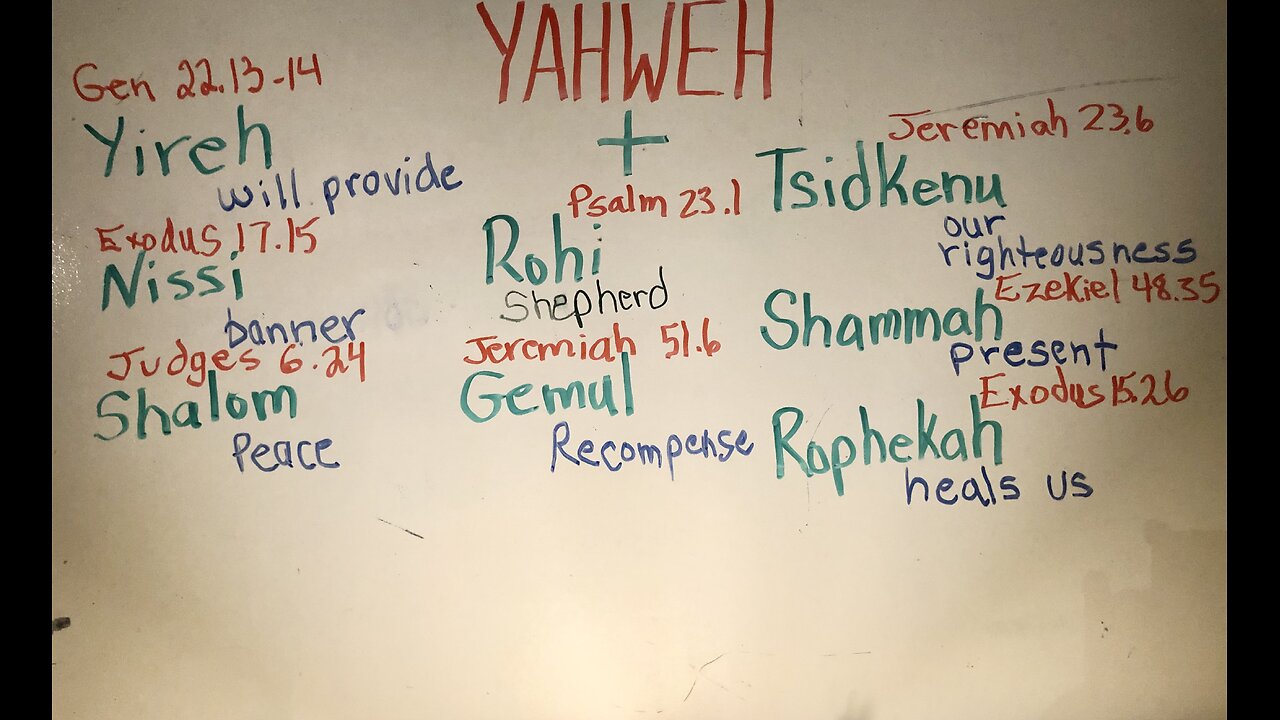 YAHWEH
+
Gen 22.13-14
Yireh
will provide
Exodus 17.15
Nissi
banner
Judges 6.24
Shalom
Peace
Psalm 23.1
Rohi
Shepherd
Jeremiah 51.6
Gemul
Recompense
Jeremiah 23.6
Tsidkenu
our
righteousness
Ezekiel 48.35
Shammah
present
Exodus 15.26
Rophekah
heals us